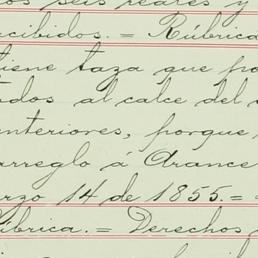 os seis reales y
ecibidos. = Rúbrica
tiene taza que po
tados al calce del
anteriores, porque
arreglo á Arance
arzo 14 de 1855. =
Rúbrica. = Derechos